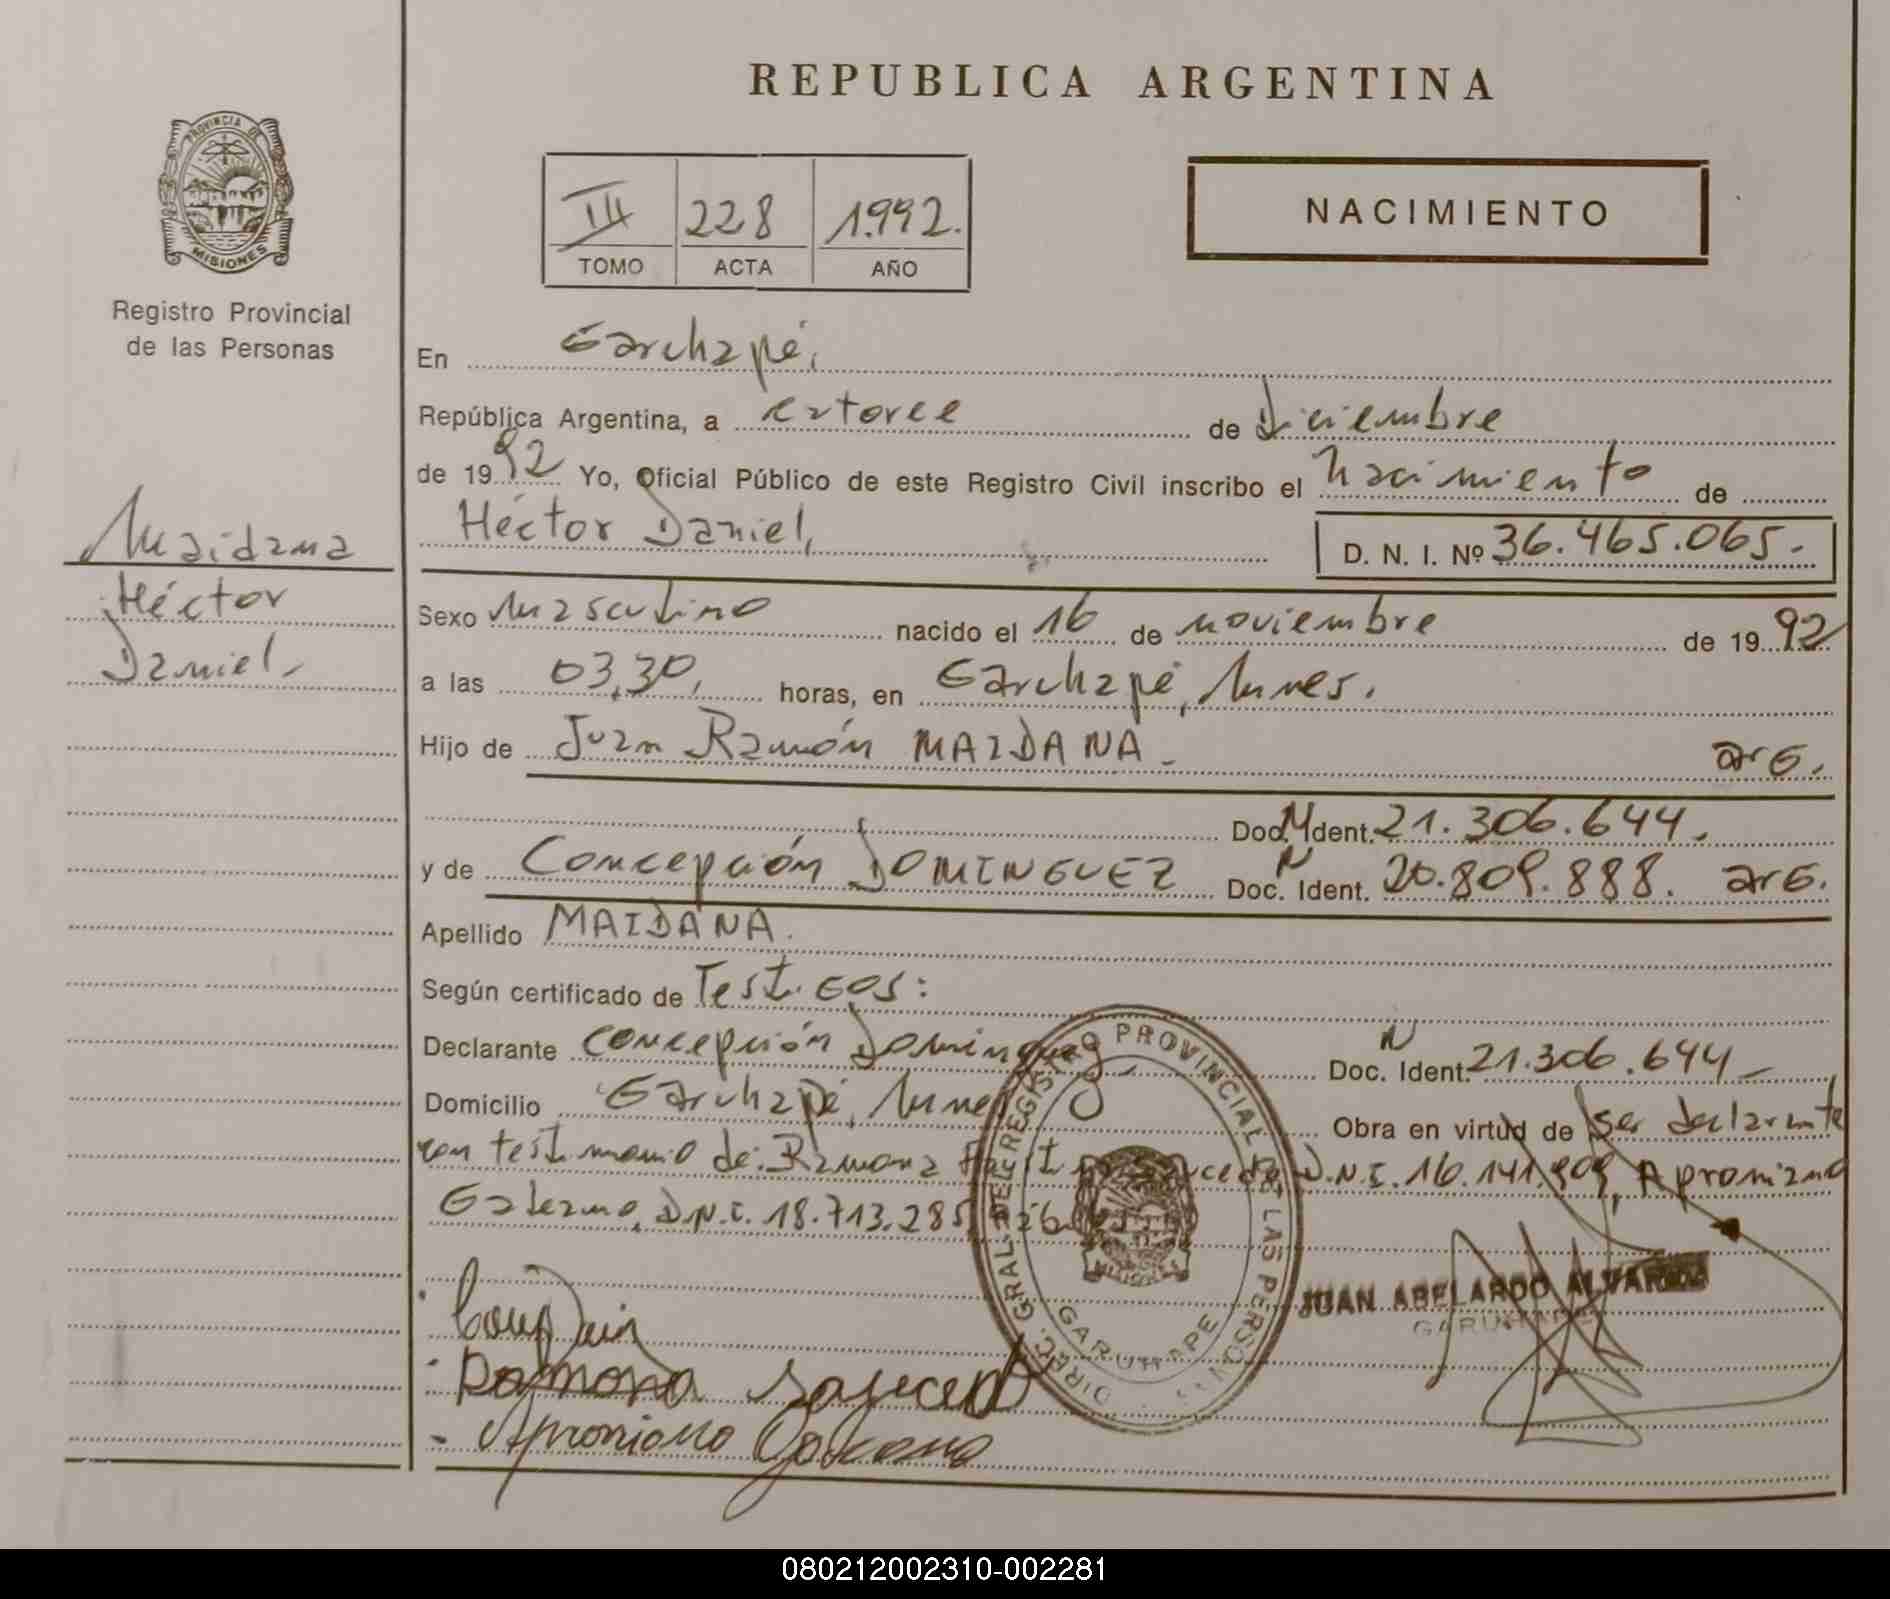 REPUBLICA ARGENTINA
PROVINCIA DE
MISIONES
Registro Provincial
de las Personas
III 228 1.992.
TOMO ACTA AÑO
NACIMIENTO
En Garuhapé,
República Argentina, a catorce de Diciembre
de 1992 Yo, Oficial Público de este Registro Civil inscribo el nacimiento de
Héctor Daniel, D. N. I. Nº 36.465.065.-
Maidana
Héctor
Daniel.
Sexo masculino nacido el 16 de noviembre de 1992
a las 03,30, horas, en Garuhapé, Mnes.
Hijo de Juan Ramón MAIDANA. arg.
Doc. N Ident. 21.306.644.
y de Concepción DOMINGUEZ Doc. N Ident. 20.809.888. arg.
Apellido MAIDANA.
Según certificado de Testigos:
Declarante Concepción Dominguez Doc. N Ident. 21.306.644-
Domicilio Garuhapé, Mnes Obra en virtud de Ser declarante
con testimonio de: Ramona D.N.I. 16.141.909, Aproniano
Galeano, D.N.I. 18.713.285
DIREC. GRAL. DEL REGISTRO PROVINCIAL DE LAS PERSONAS
MISIONES
GARUHAPE
JUAN ABELARDO ALVAREZ
GARUHAPE
Ramona Salcedo
Aproniano Galeano
080212002310-002281